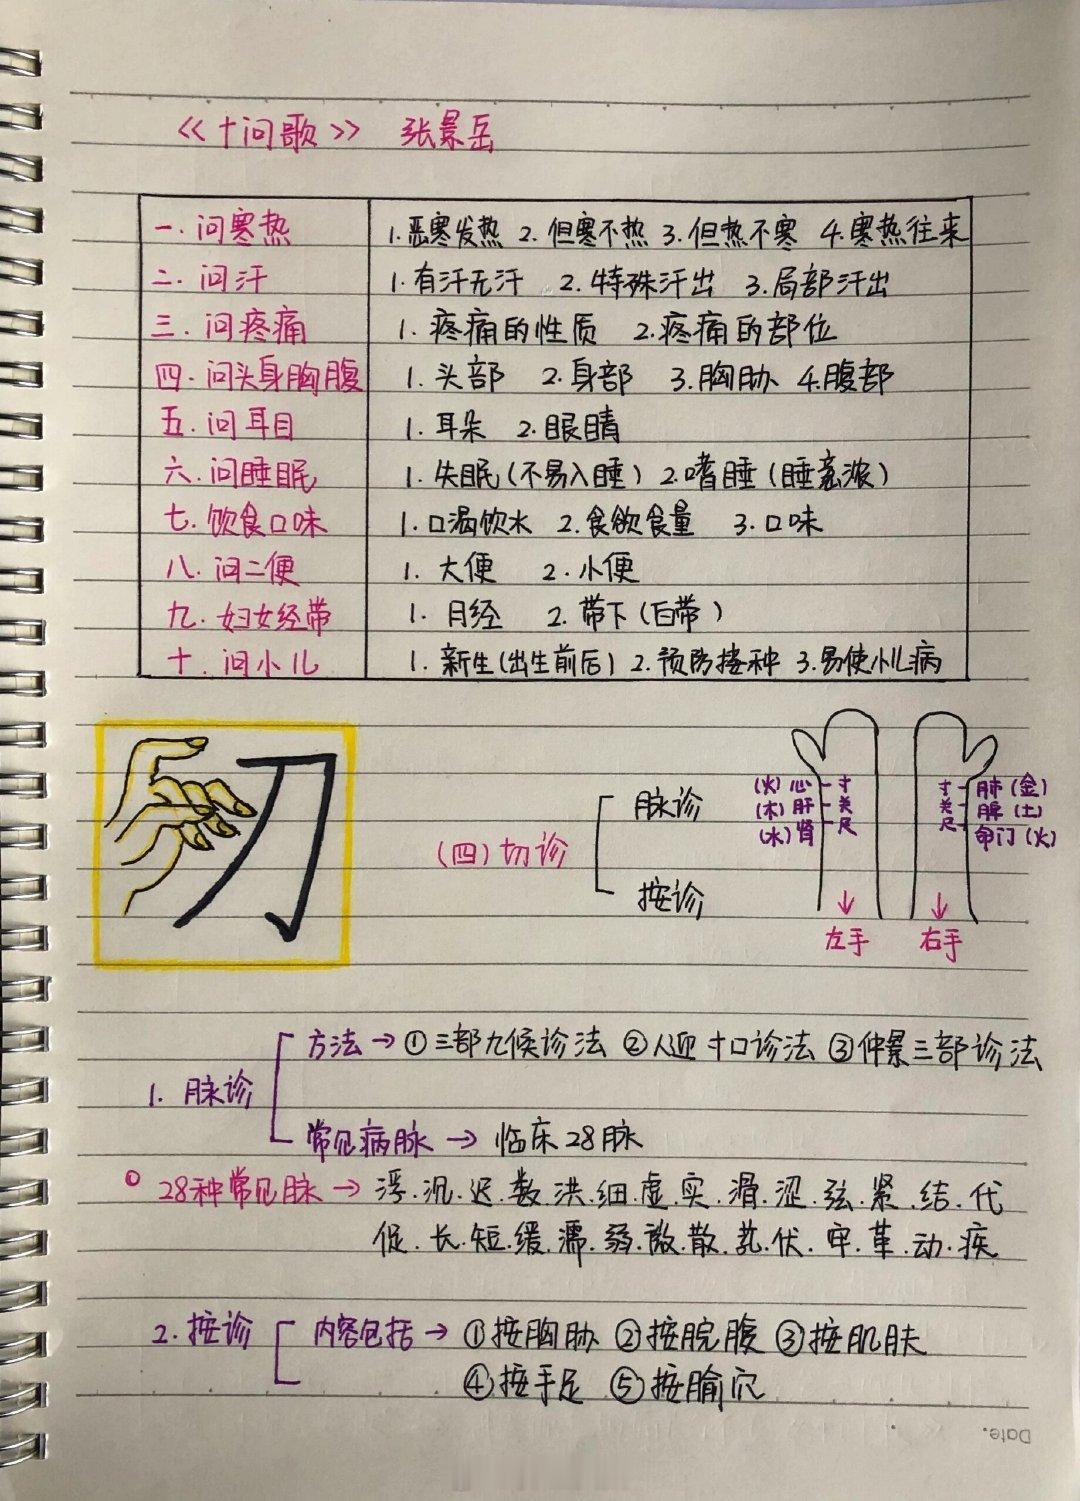 《十问歌》 张景岳
一.问寒热 1.恶寒发热 2.但寒不热 3.但热不寒 4.寒热往来
二.问汗 1.有汗无汗 2.特殊汗出 3.局部汗出
三.问疼痛 1.疼痛的性质 2.疼痛的部位
四.问头身胸腹 1.头部 2.身部 3.胸胁 4.腹部
五.问耳目 1.耳朵 2.眼睛
六.问睡眠 1.失眠(不易入睡) 2.嗜睡(睡意浓)
七.饮食口味 1.口渴饮水 2.食欲食量 3.口味
八.问二便 1.大便 2.小便
九.妇女经带 1.月经 2.带下(白带)
十.问小儿 1.新生(出生前后) 2.预防接种 3.易使小儿病
刀
(四)切诊
脉诊
按诊
(火)心 寸
(木)肝 关
(水)肾 尺
寸 肺(金)
关 脾(土)
尺 命门(火)
左手 右手
1.脉诊
方法→①三部九候诊法 ②人迎寸口诊法 ③仲景三部诊法
常见病脉→临床28脉
28种常见脉→浮.沉.迟.数.洪.细.虚.实.滑.涩.弦.紧.结.代
促.长.短.缓.濡.弱.微.散.芤.伏.牢.革.动.疾
2.按诊 内容包括→①按胸胁 ②按脘腹 ③按肌肤
④按手足 ⑤按腧穴
Date.